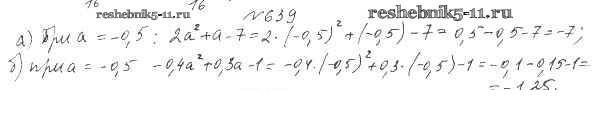 16 reshebnik5-11.ru 16 №639 reshebnik5-11.ru
а) При a = -0,5 : 2a² + a - 7 = 2 · (-0,5)² + (-0,5) - 7 = 0,5 - 0,5 - 7 = -7;
б) при a = -0,5 -0,4a² + 0,3a - 1 = -0,4 · (-0,5)² + 0,3 · (-0,5) - 1 = -0,1 - 0,15 - 1 =
= -1,25.